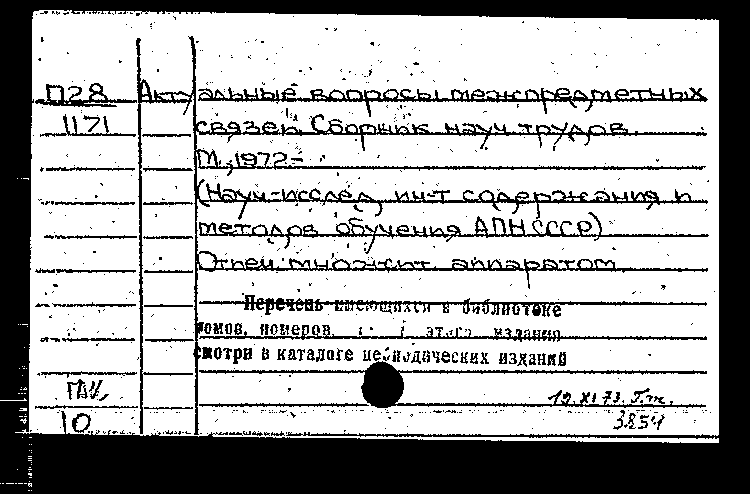 П28 Актуальные вопросы межпредметных
1171 связей. Сборник науч. трудов.
М., 1972-
(Науч.-исслед. ин-т содержания и
методов обучения АПН СССР)
Отпеч. множит. аппаратом.
Перечень имеющихся в библиотеке
томов, номеров, этого издания
смотри в каталоге периодических изданий
ГБЛ,
19.XI 73. Г.т.
10 3854